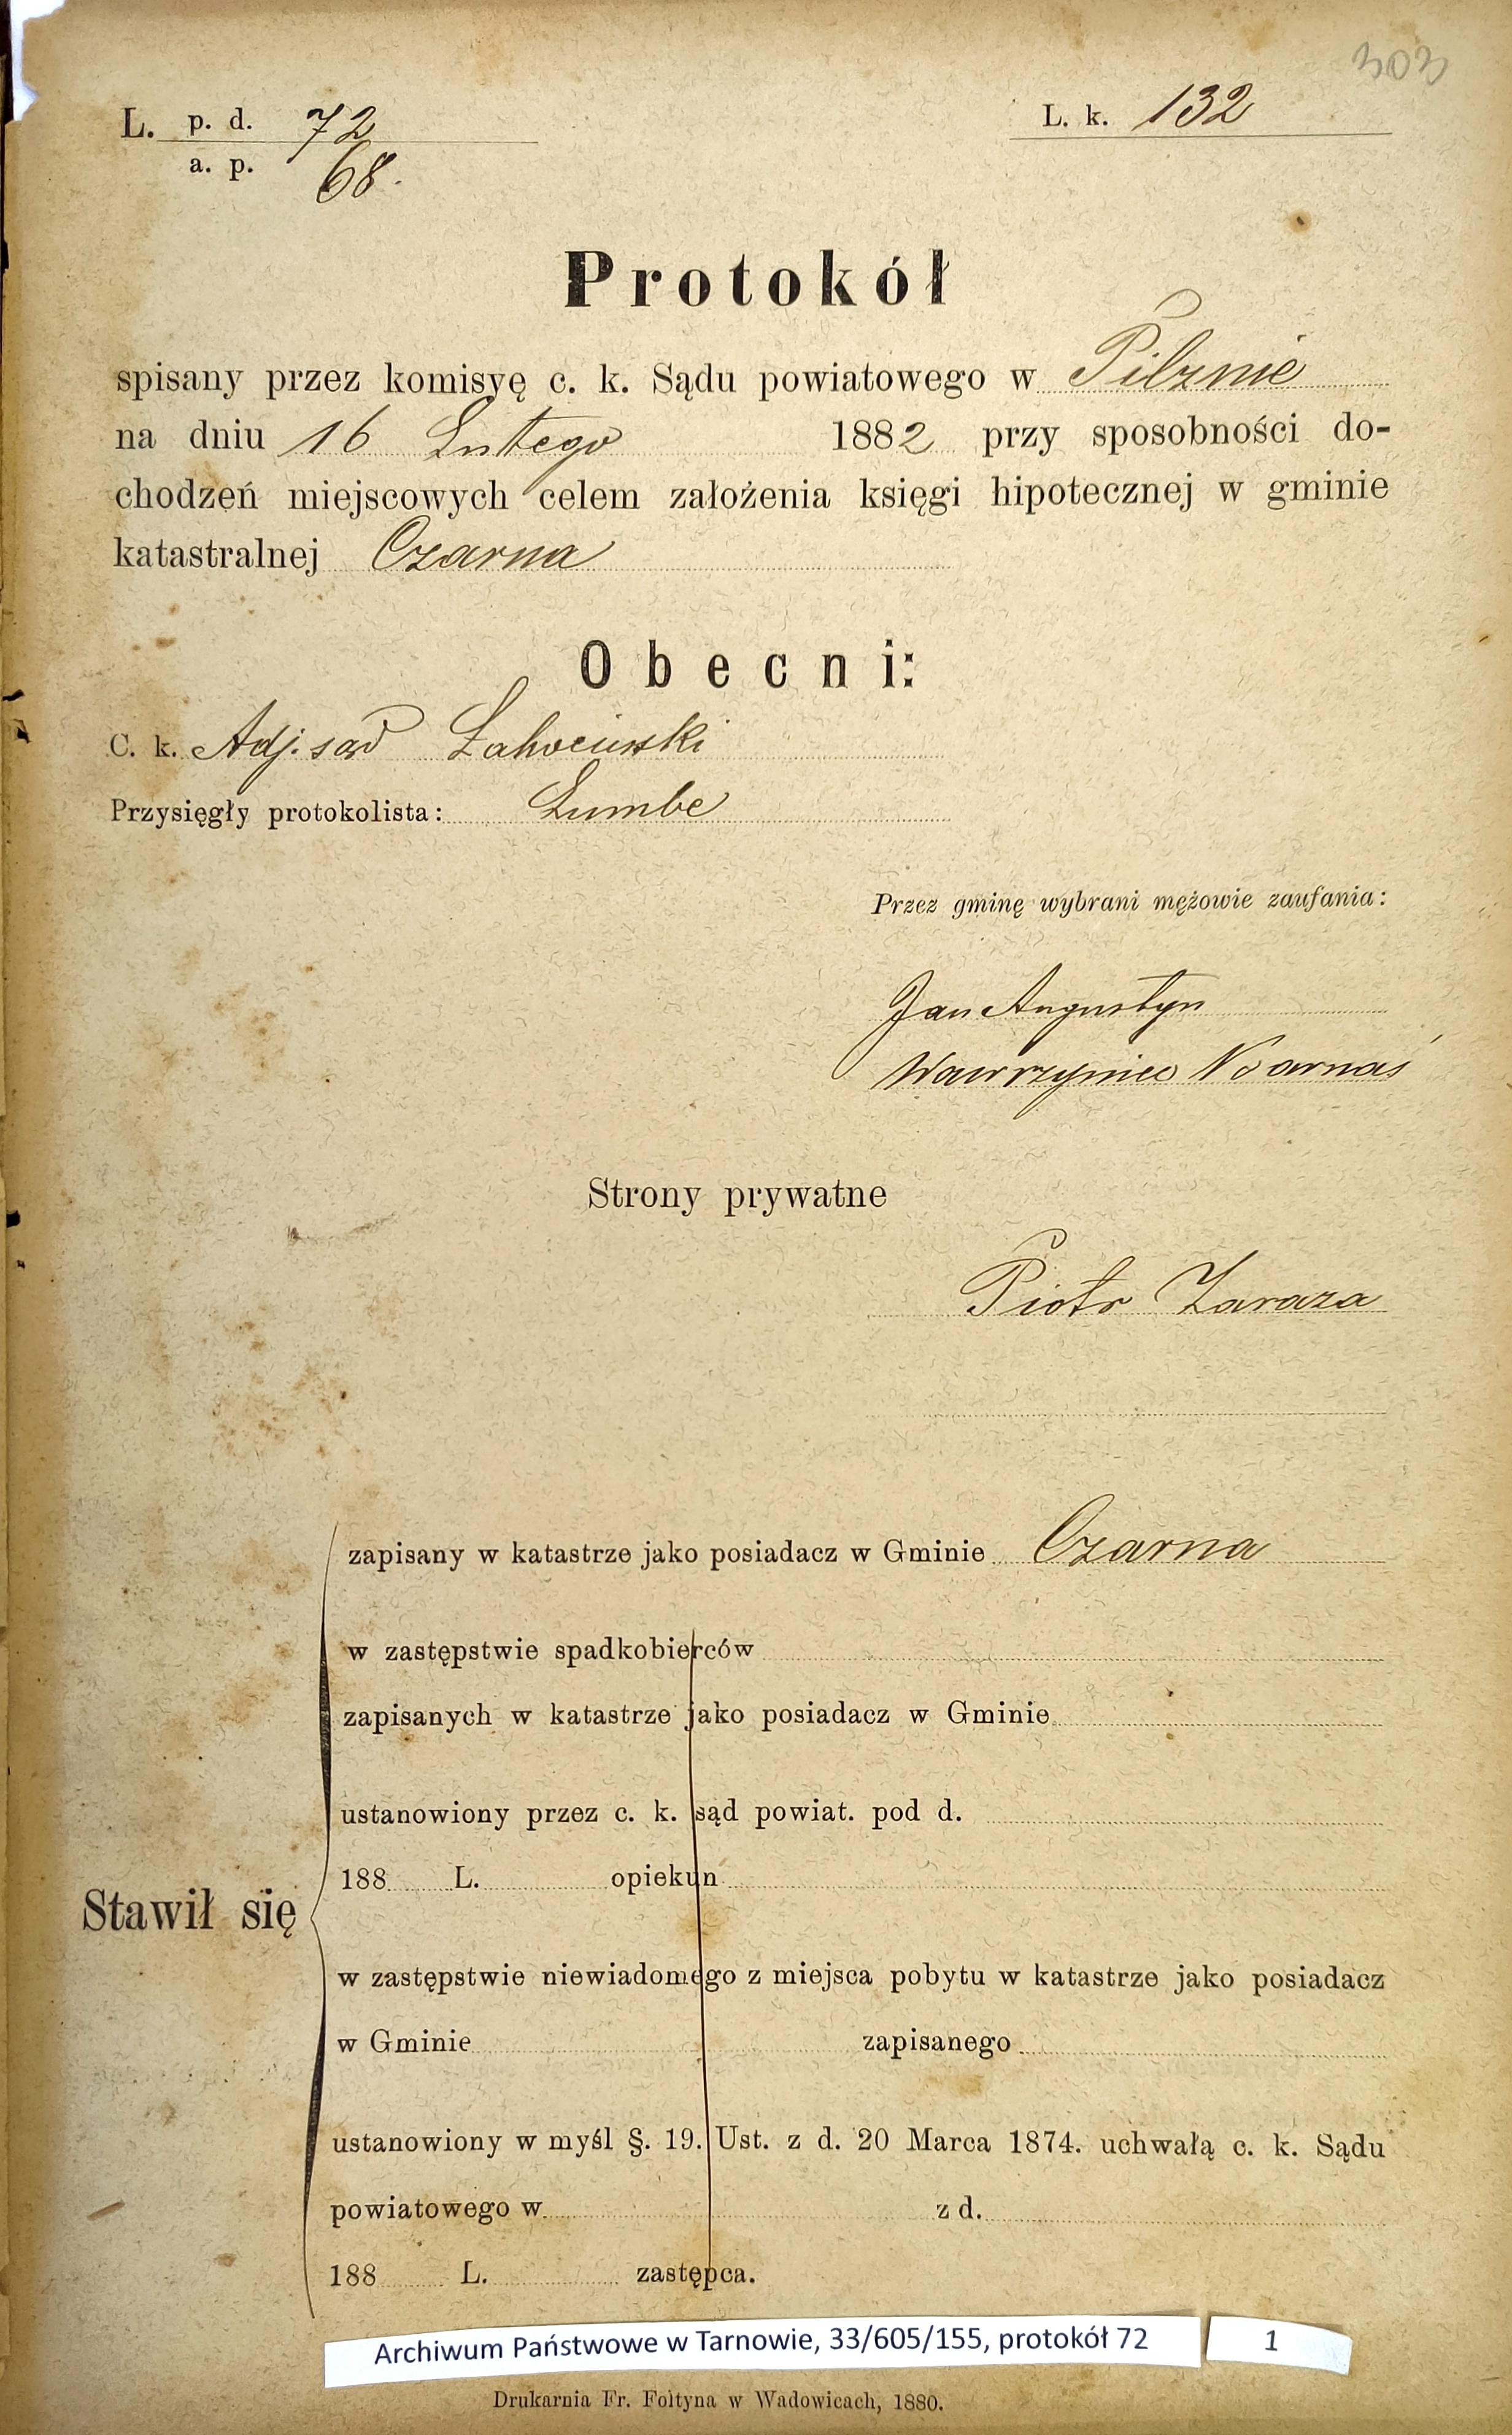 303
L. p. d. 72
a. p. 68.
L. k. 132
Protokół
spisany przez komisyę c. k. Sądu powiatowego w Pilznie
na dniu 16 Lutego 1882 przy sposobności do-
chodzeń miejscowych celem założenia księgi hipotecznej w gminie
katastralnej Czarna
Obecni:
C. k. Adj. sąd
Przysięgły protokolista: Łumbe
Przez gminę wybrani mężowie zaufania:
Jan Augustyn
Wawrzyniec
Strony prywatne
Piotr Zaraza
zapisany w katastrze jako posiadacz w Gminie Czarna
w zastępstwie spadkobierców
zapisanych w katastrze jako posiadacz w Gminie
ustanowiony przez c. k. sąd powiat. pod d.
188 L. opiekun
Stawił się
w zastępstwie niewiadomego z miejsca pobytu w katastrze jako posiadacz
w Gminie zapisanego
ustanowiony w myśl §. 19. Ust. z d. 20 Marca 1874. uchwałą c. k. Sądu
powiatowego w z d.
188 L. zastępca.
Archiwum Państwowe w Tarnowie, 33/605/155, protokół 72 1
Drukarnia Fr. Foltyna w Wadowicach, 1880.